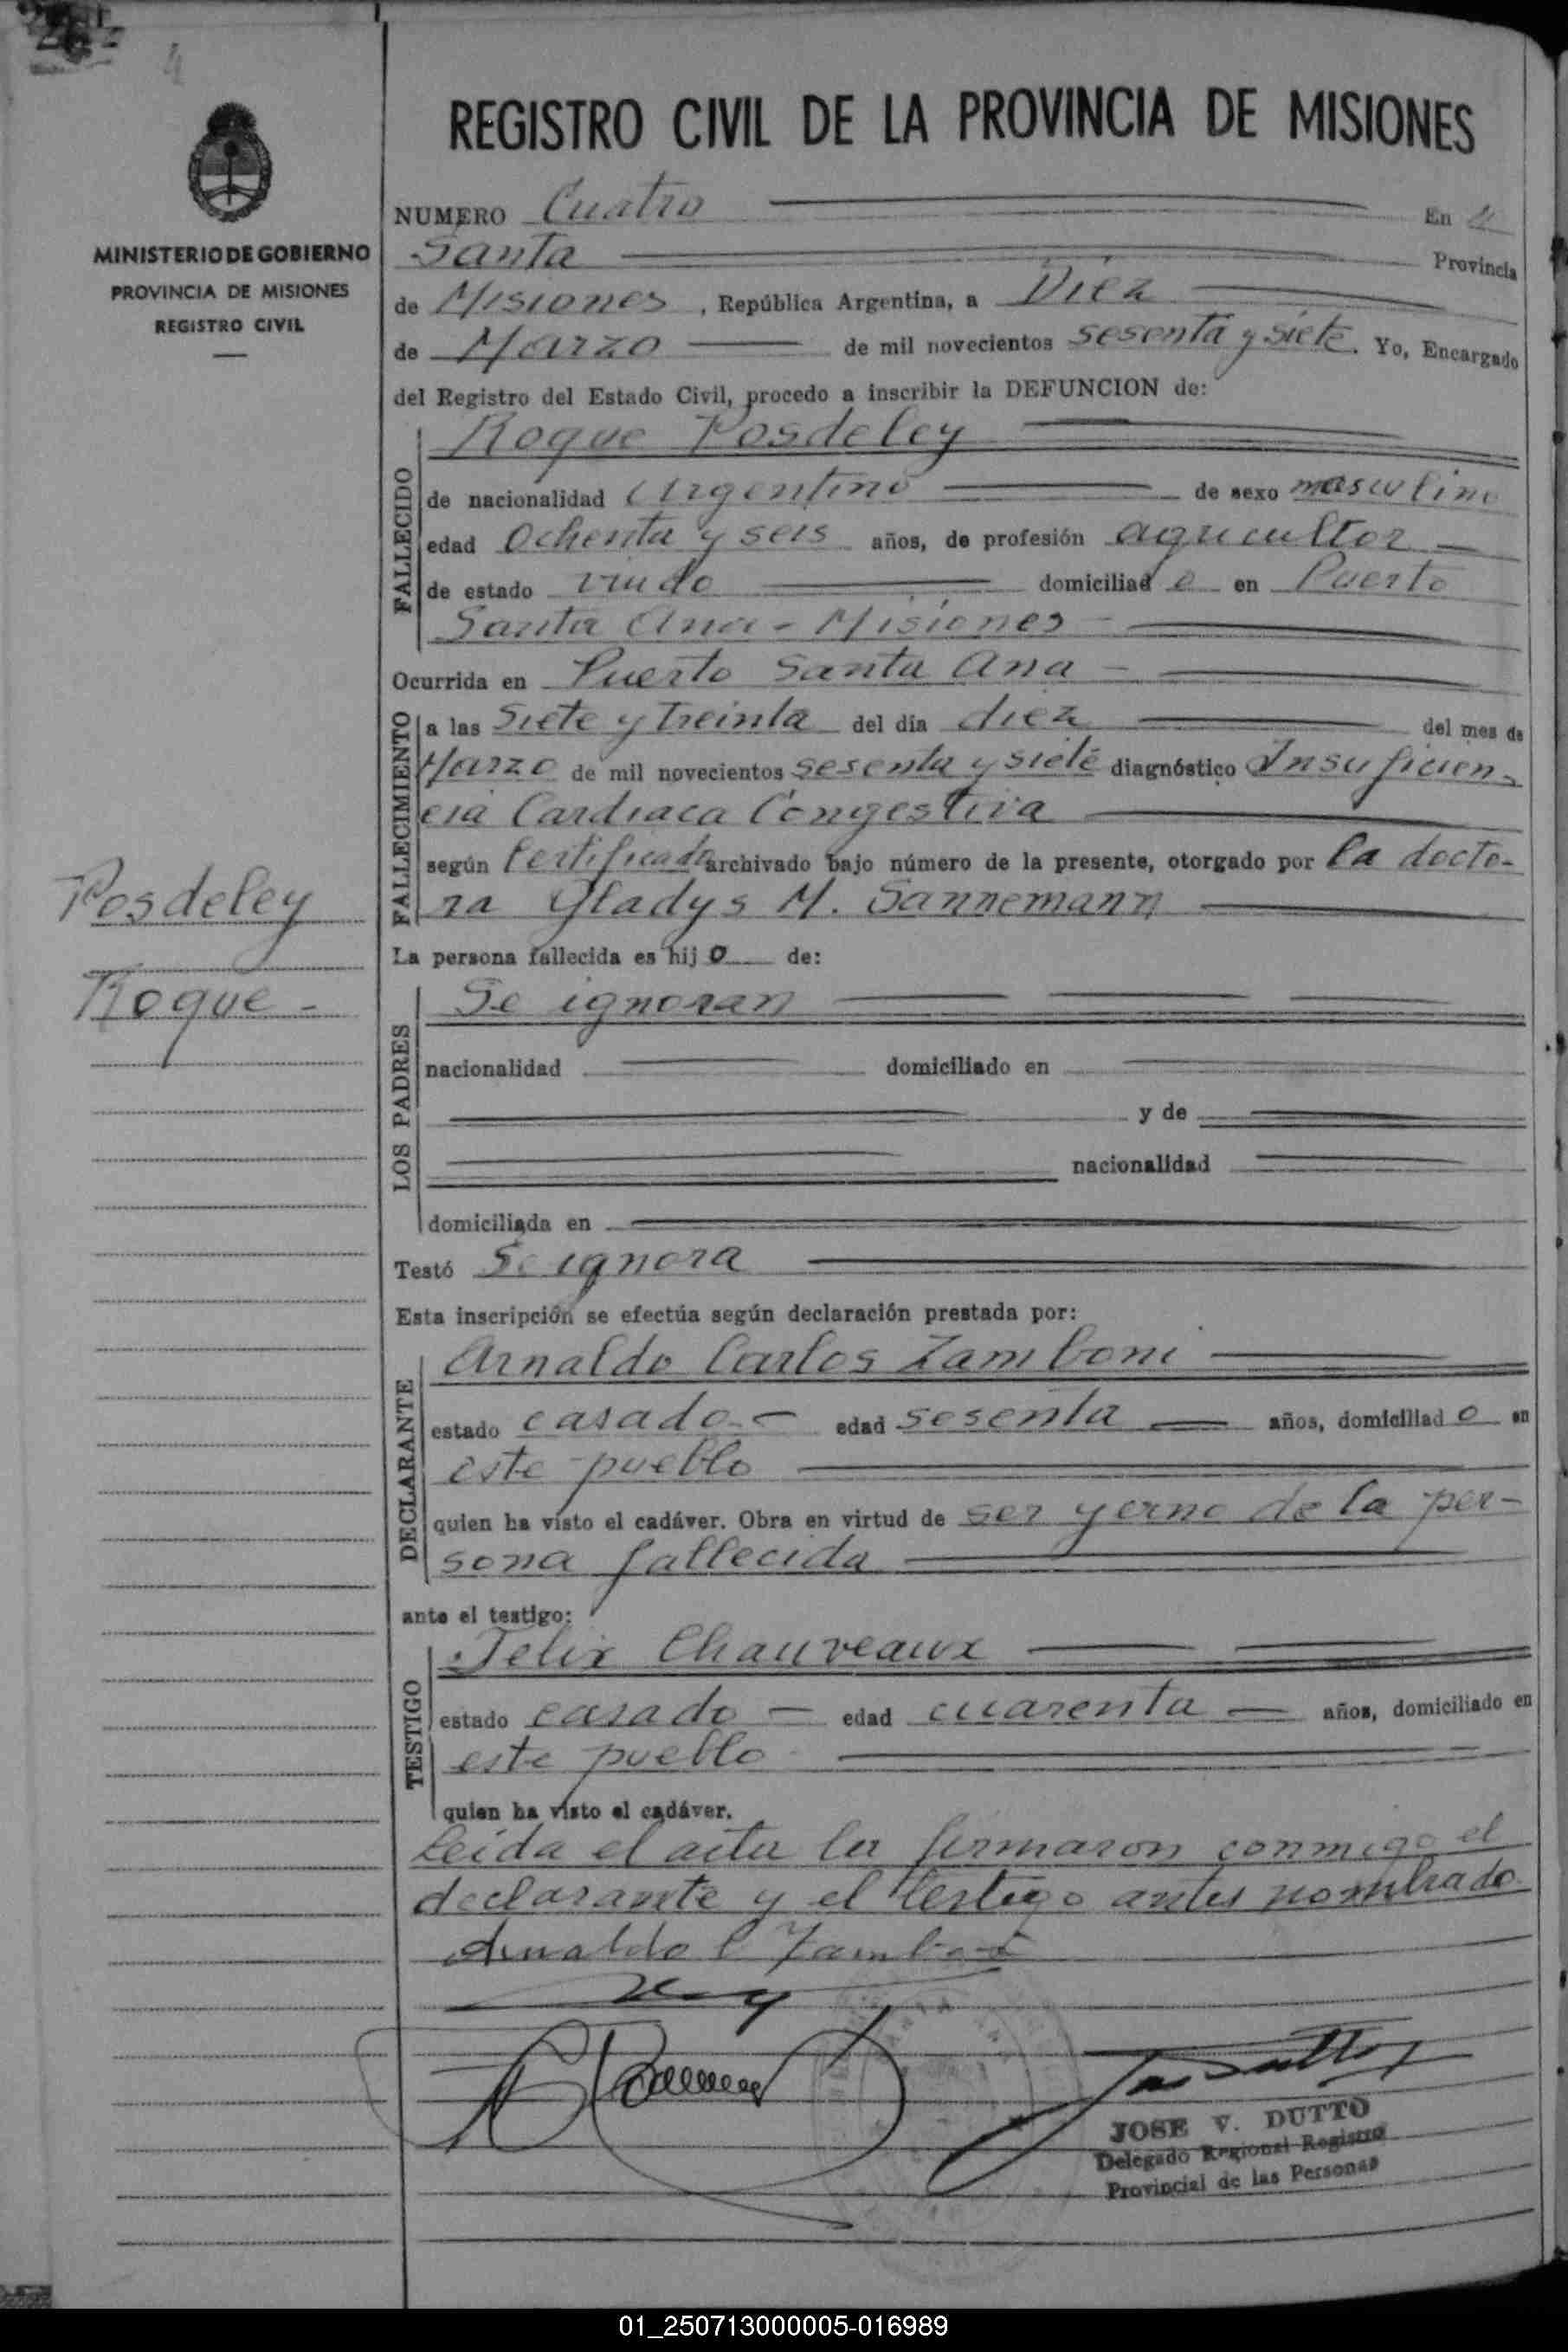 4
REGISTRO CIVIL DE LA PROVINCIA DE MISIONES
MINISTERIO DE GOBIERNO
PROVINCIA DE MISIONES
REGISTRO CIVIL
Posdeley
Roque -
NUMERO Cuatro En
Santa Provincia
de Misiones, República Argentina, a Diez
de Marzo de mil novecientos sesenta y siete. Yo, Encargado
del Registro del Estado Civil, procedo a inscribir la DEFUNCION de:
FALLECIDO
Roque Posdeley
de nacionalidad Argentino de sexo masculino
edad Ochenta y seis años, de profesión agricultor
de estado viudo domiciliado en Puerto
Santa Ana - Misiones
Ocurrida en Puerto Santa Ana
FALLECIMIENTO
a las Siete y Treinta del día diez del mes de
Marzo de mil novecientos sesenta y siete diagnóstico Insuficien-
cia Cardiaca Congestiva
según Certificado archivado bajo número de la presente, otorgado por la docto-
ra Gladys M. Sannemann
La persona fallecida es hijo de:
LOS PADRES
Se ignoran
nacionalidad domiciliado en
y de
nacionalidad
domiciliada en
Testó Se ignora
Esta inscripción se efectúa según declaración prestada por:
DECLARANTE
Arnaldo Carlos Zamboni
estado casado edad sesenta años, domiciliado en
este pueblo
quien ha visto el cadáver. Obra en virtud de ser yerno de la per-
sona fallecida
ante el testigo:
TESTIGO
Felix Chauveaux
estado casado edad cuarenta años, domiciliado en
este pueblo
quien ha visto el cadáver.
Leida el acta la firmaron conmigo el
declarante y el testigo antes nombrado
Arnaldo C Zamboni
JOSE V. DUTTO
Delegado Regional Registro
Provincial de las Personas
01_250713000005-016989